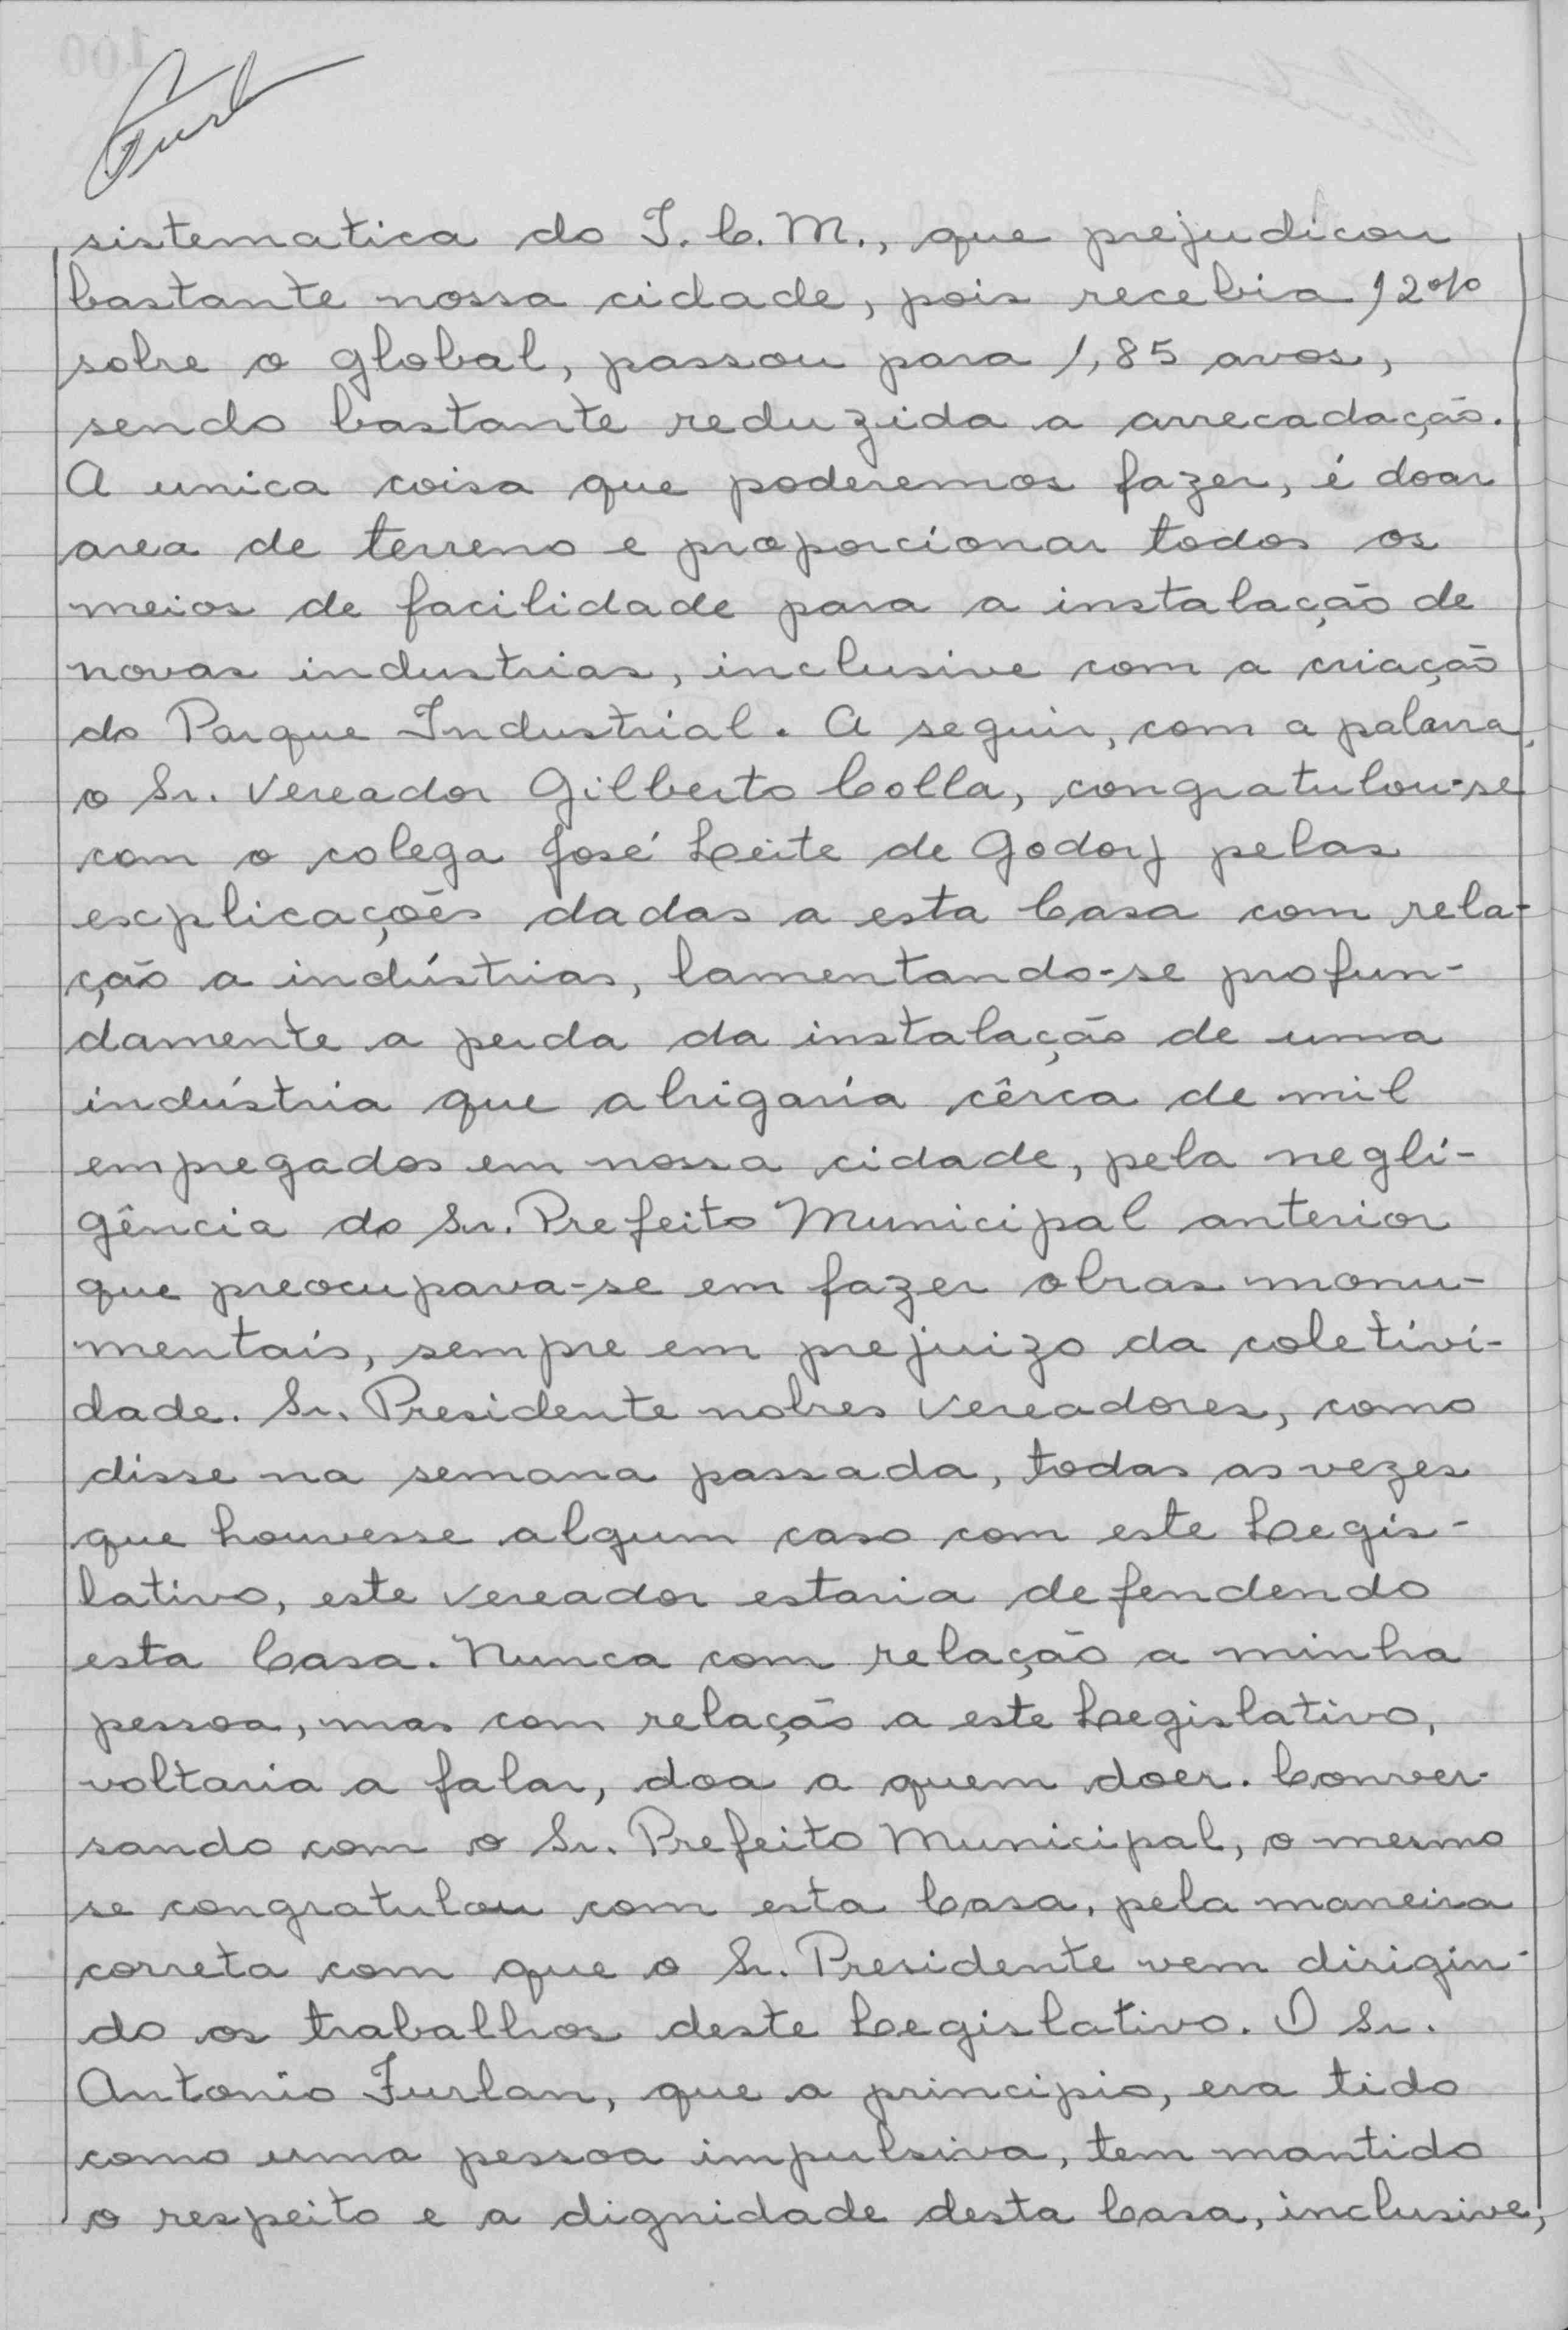 sistematica do I.C.M., que prejudicou
bastante nossa cidade, pois recebia 12%
sobre o global, passou para 1,85 avos,
sendo bastante reduzida a arrecadação.
A unica coisa que poderemos fazer, é doar
area de terreno e proporcionar todos os
meios de facilidade para a instalação de
novas industrias, inclusive com a criação
do Parque Industrial. A seguir, com a palavra,
o Sr. Vereador Gilberto Colla, congratulou-se
com o colega José Leite de Godoy pelas
explicações dadas a esta Casa com rela-
ção a indústrias, lamentando-se profun-
damente a perda da instalação de uma
indústria que abrigaria cêrca de mil
empregados em nossa cidade, pela negli-
gência do Sr. Prefeito Municipal anterior
que preocupava-se em fazer obras monu-
mentais, sempre em prejuizo da coletivi-
dade. Sr. Presidente nobres Vereadores, como
disse na semana passada, todas as vezes
que houvesse algum caso com este Legis-
lativo, este Vereador estaria defendendo
esta Casa. Nunca com relação a minha
pessoa, mas com relação a este Legislativo,
voltaria a falar, doa a quem doer. Conver-
sando com o Sr. Prefeito Municipal, o mesmo
se congratulou com esta Casa, pela maneira
correta com que o Sr. Presidente vem dirigin-
do os trabalhos deste Legislativo. O Sr.
Antonio Furlan, que a principio, era tido
como uma pessoa impulsiva, tem mantido
o respeito e a dignidade desta Casa, inclusive,